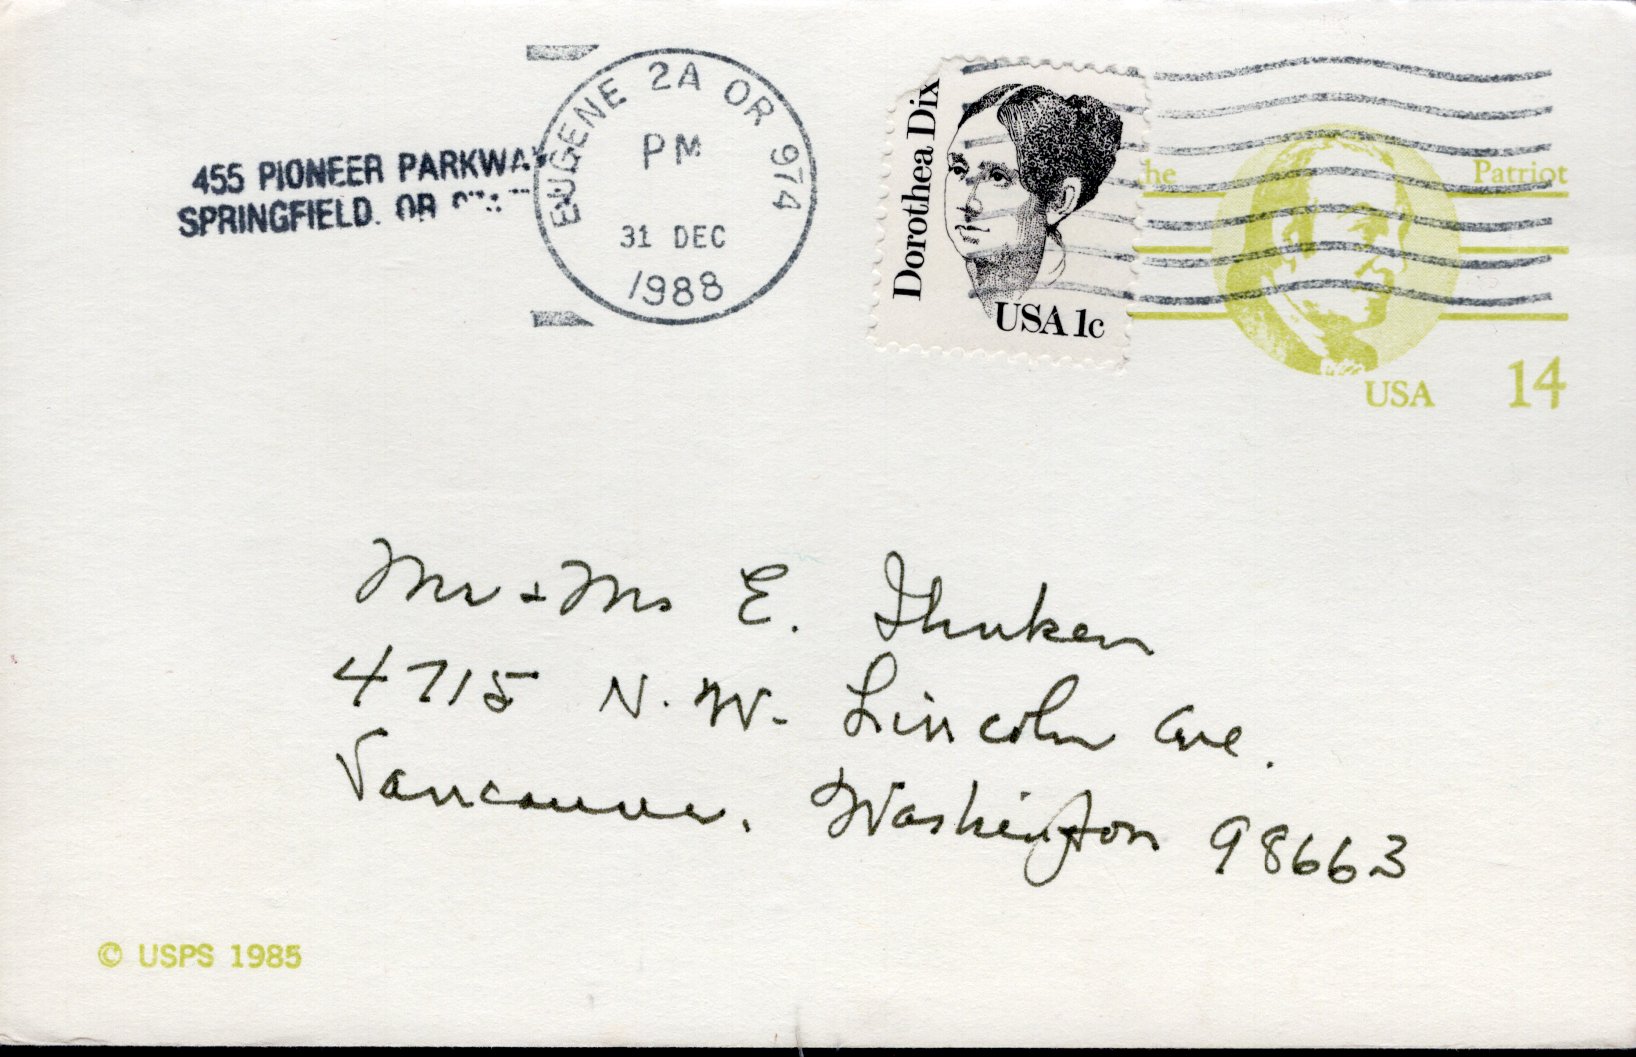 455 PIONEER PARKWAY
SPRINGFIELD, OR
EUGENE 2A OR 974
PM
31 DEC
1988
Dorothea Dix
USA 1c
he Patriot
USA 14
Mr + Ms E. Thuken
4715 N.W. Lincoln Ave.
Vancouver, Washington 98663
© USPS 1985